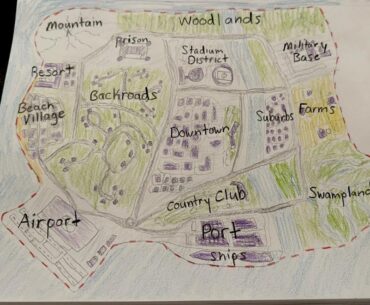 Mountain
Woodlands
Prison
Stadium
District
Military
Base
Resort
Backroads
Beach
Village
Downtown
Suburbs
Farms
Country Club
Swampland
Airport
Port
Ships